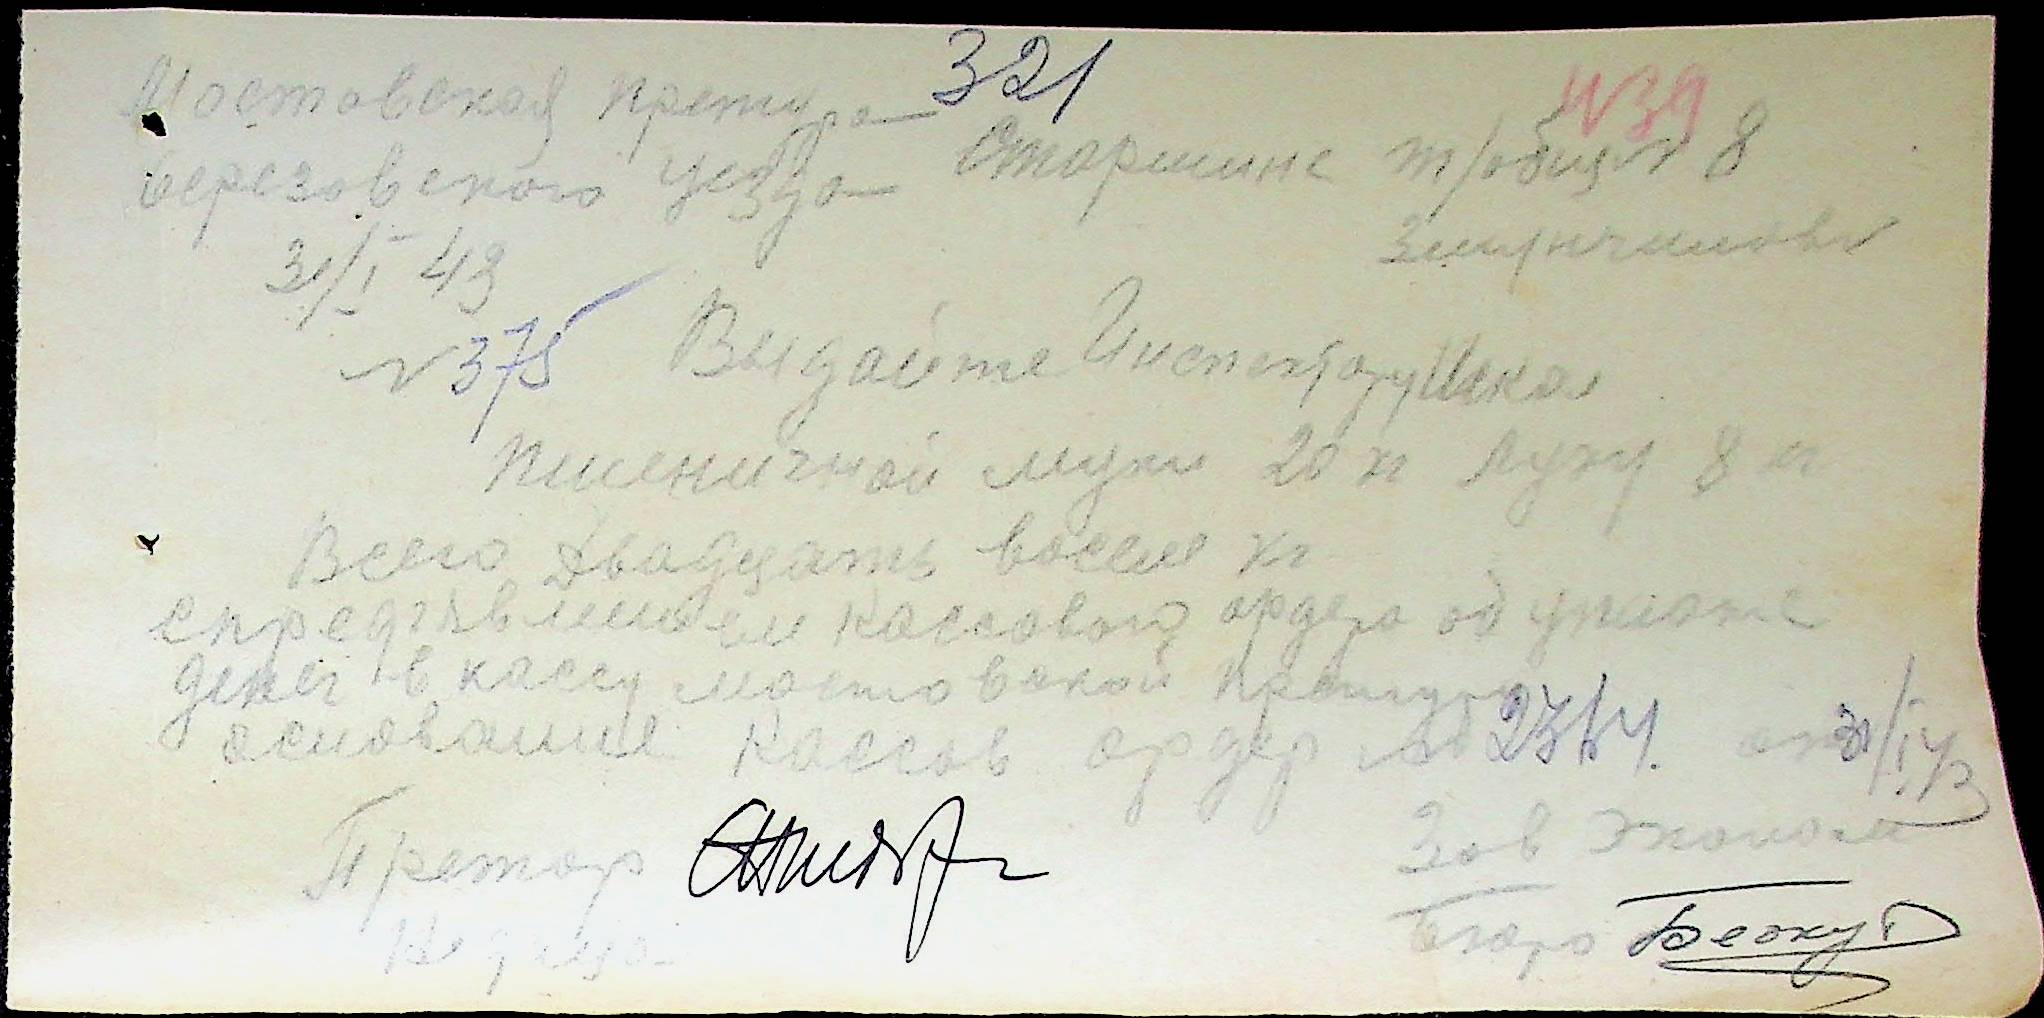 321
N39
Мостовская претура
Березовского уезда
Старшине т/общ N 8
31/I 43
N 375
Выдайте Инспектору Школ
пшеничной муки 20 кг Луку 8 кг
Всего Двадцать восем кг
спредъявлением кассового ордера об уплате
денег в кассу мостовской претуры
основание Кассов ордер № от 31/I 43
Претор
Зав эконом
Бюро